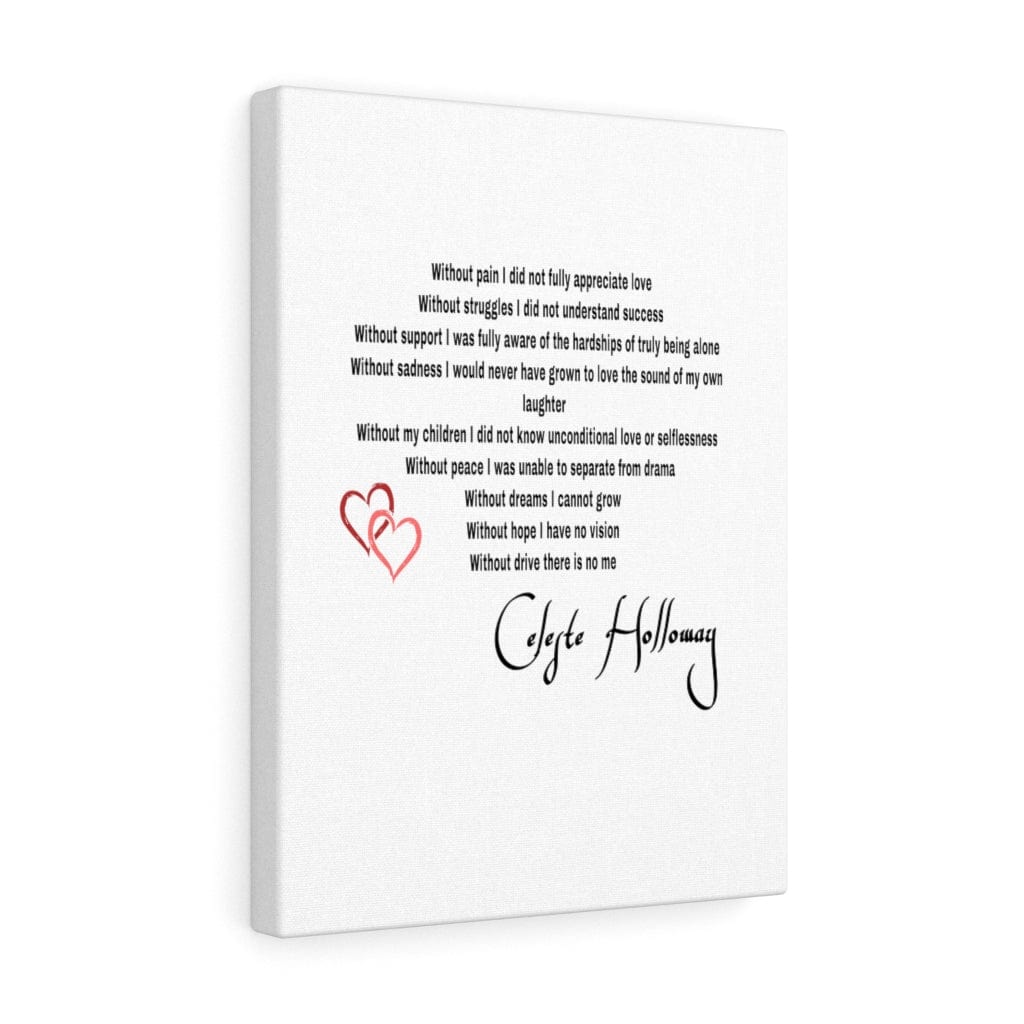 Without pain I did not fully appreciate love
Without struggles I did not understand success
Without support I was fully aware of the hardships of truly being alone
Without sadness I would never have grown to love the sound of my own
laughter
Without my children I did not know unconditional love or selflessness
Without peace I was unable to separate from drama
Without dreams I cannot grow
Without hope I have no vision
Without drive there is no me
Celeste Holloway